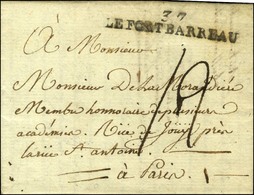 37
LE FORT BARREAU
A Monsieur
Monsieur De la Morandiere
Membre honnoraire de plusieurs
académies. Rüe de Joüy près
la rüe St. antoine
à Paris